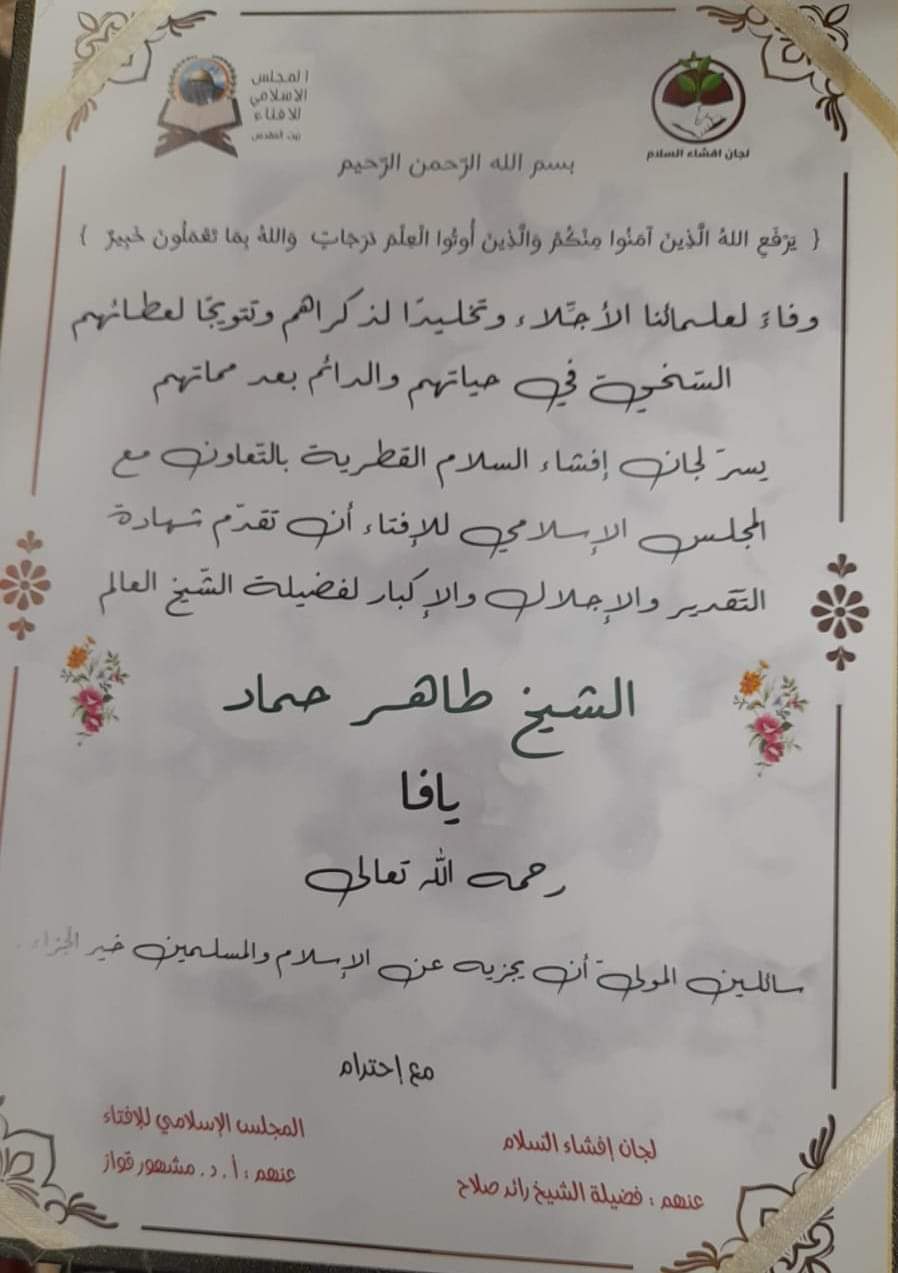 المجلس
الإسلامي
للإفتاء
بيت المقدس
لجان افشاء السلام
بسم الله الرّحمن الرّحيم
{ يَرْفَعِ اللهُ الَّذِينَ آمَنُوا مِنْكُمْ وَالَّذِينَ أُوتُوا الْعِلْمَ دَرَجَاتٍ وَاللهُ بِمَا تَعْمَلُونَ خَبِيرٌ }
وفاءً لعلمائنا الأجلّاء وتخليدًا لذكراهم وتتويجًا لعطائهم
السّخيّ في حياتهم والدائم بعد مماتهم
يسرّ لجان إفشاء السلام القطرية بالتّعاون مع
المجلس الإسلامي للإفتاء أن تقدّم شهادة
التّقدير والإجلال والإكبار لفضيلة الشّيخ العالم
الشيخ طاهر حماد
يافا
رحمه الله تعالى
سائلين المولى أن يجزيه عن الإسلام والمسلمين خير الجزاء .
مع إحترام
المجلس الإسلامي للإفتاء
عنهم : أ . د . مشهور فواز
لجان إفشاء السلام
عنهم : فضيلة الشيخ رائد صلاح